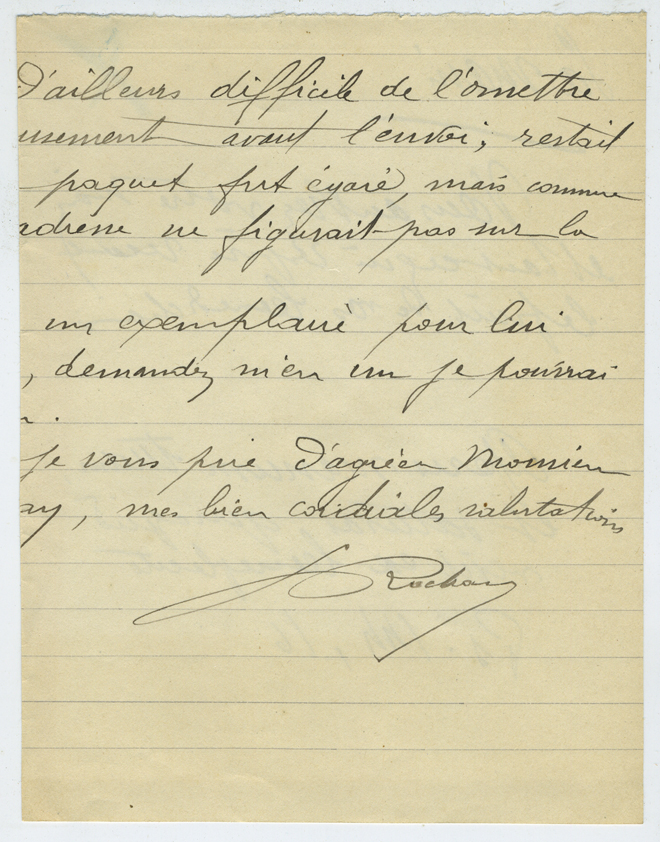 D'ailleurs difficile de l'omettre
usement avant l'envoi, restait
paquet fut égaré, mais comme
adresse ne figurait pas sur la
un exemplaire pour lui
, demandez m'en un je pourrai
je vous prie d'agréer Monsieur
ay, mes bien cordiales salutations